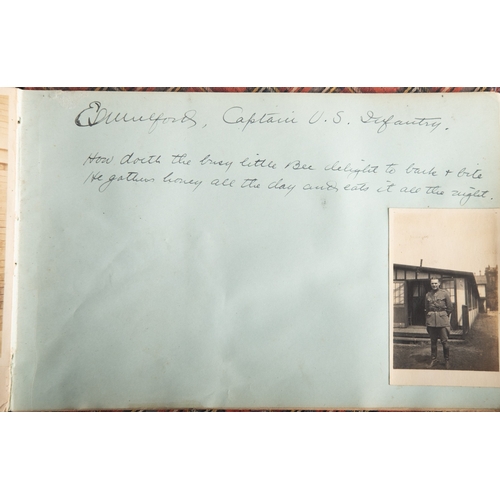 E Mulford, Captain U.S. Infantry.
How doeth the busy little Bee delight to bark & bite
He gathers honey all the day and eats it all the night.